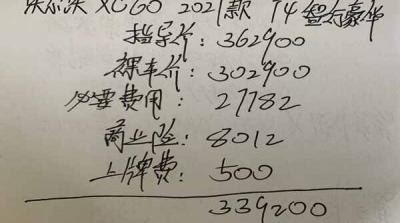 沃尔沃 XC60 2021款 T4 智行豪华
指导价: 362900
裸车价: 302900
必要费用: 27782
商业险: 8012
上牌费: 500
339200